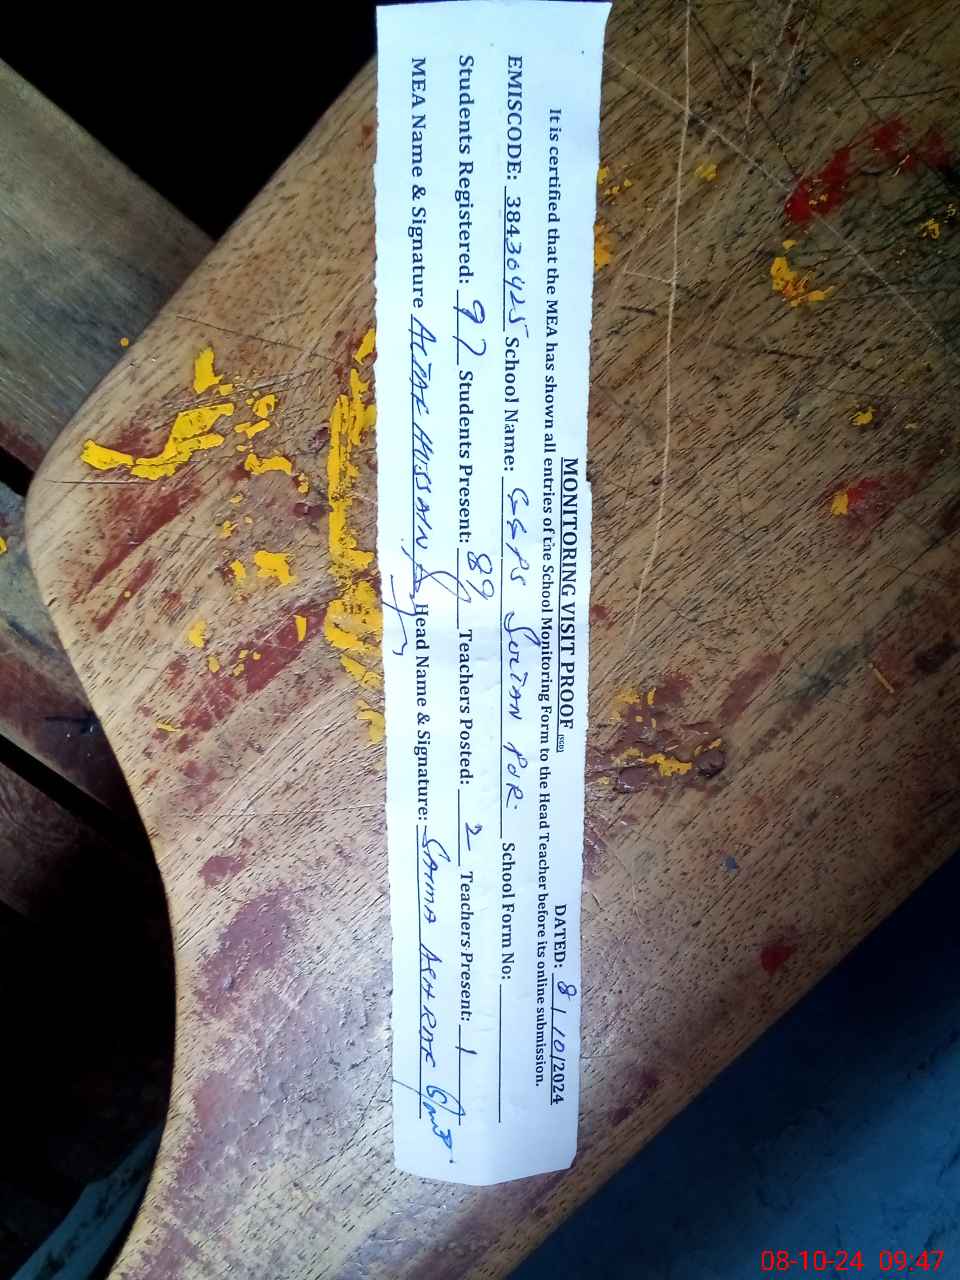 MONITORING VISIT PROOF (SED) DATED: 8/10/2024
It is certified that the MEA has shown all entries of the School Monitoring Form to the Head Teacher before its online submission.
EMISCODE: 38430425 School Name: GGPS SULTAN PUR. School Form No:
Students Registered: 92 Students Present: 89 Teachers Posted: 2 Teachers Present: 1
MEA Name & Signature ALTAF HUSSAIN Head Name & Signature: SAIMA ASHRAF
08-10-24 09:47